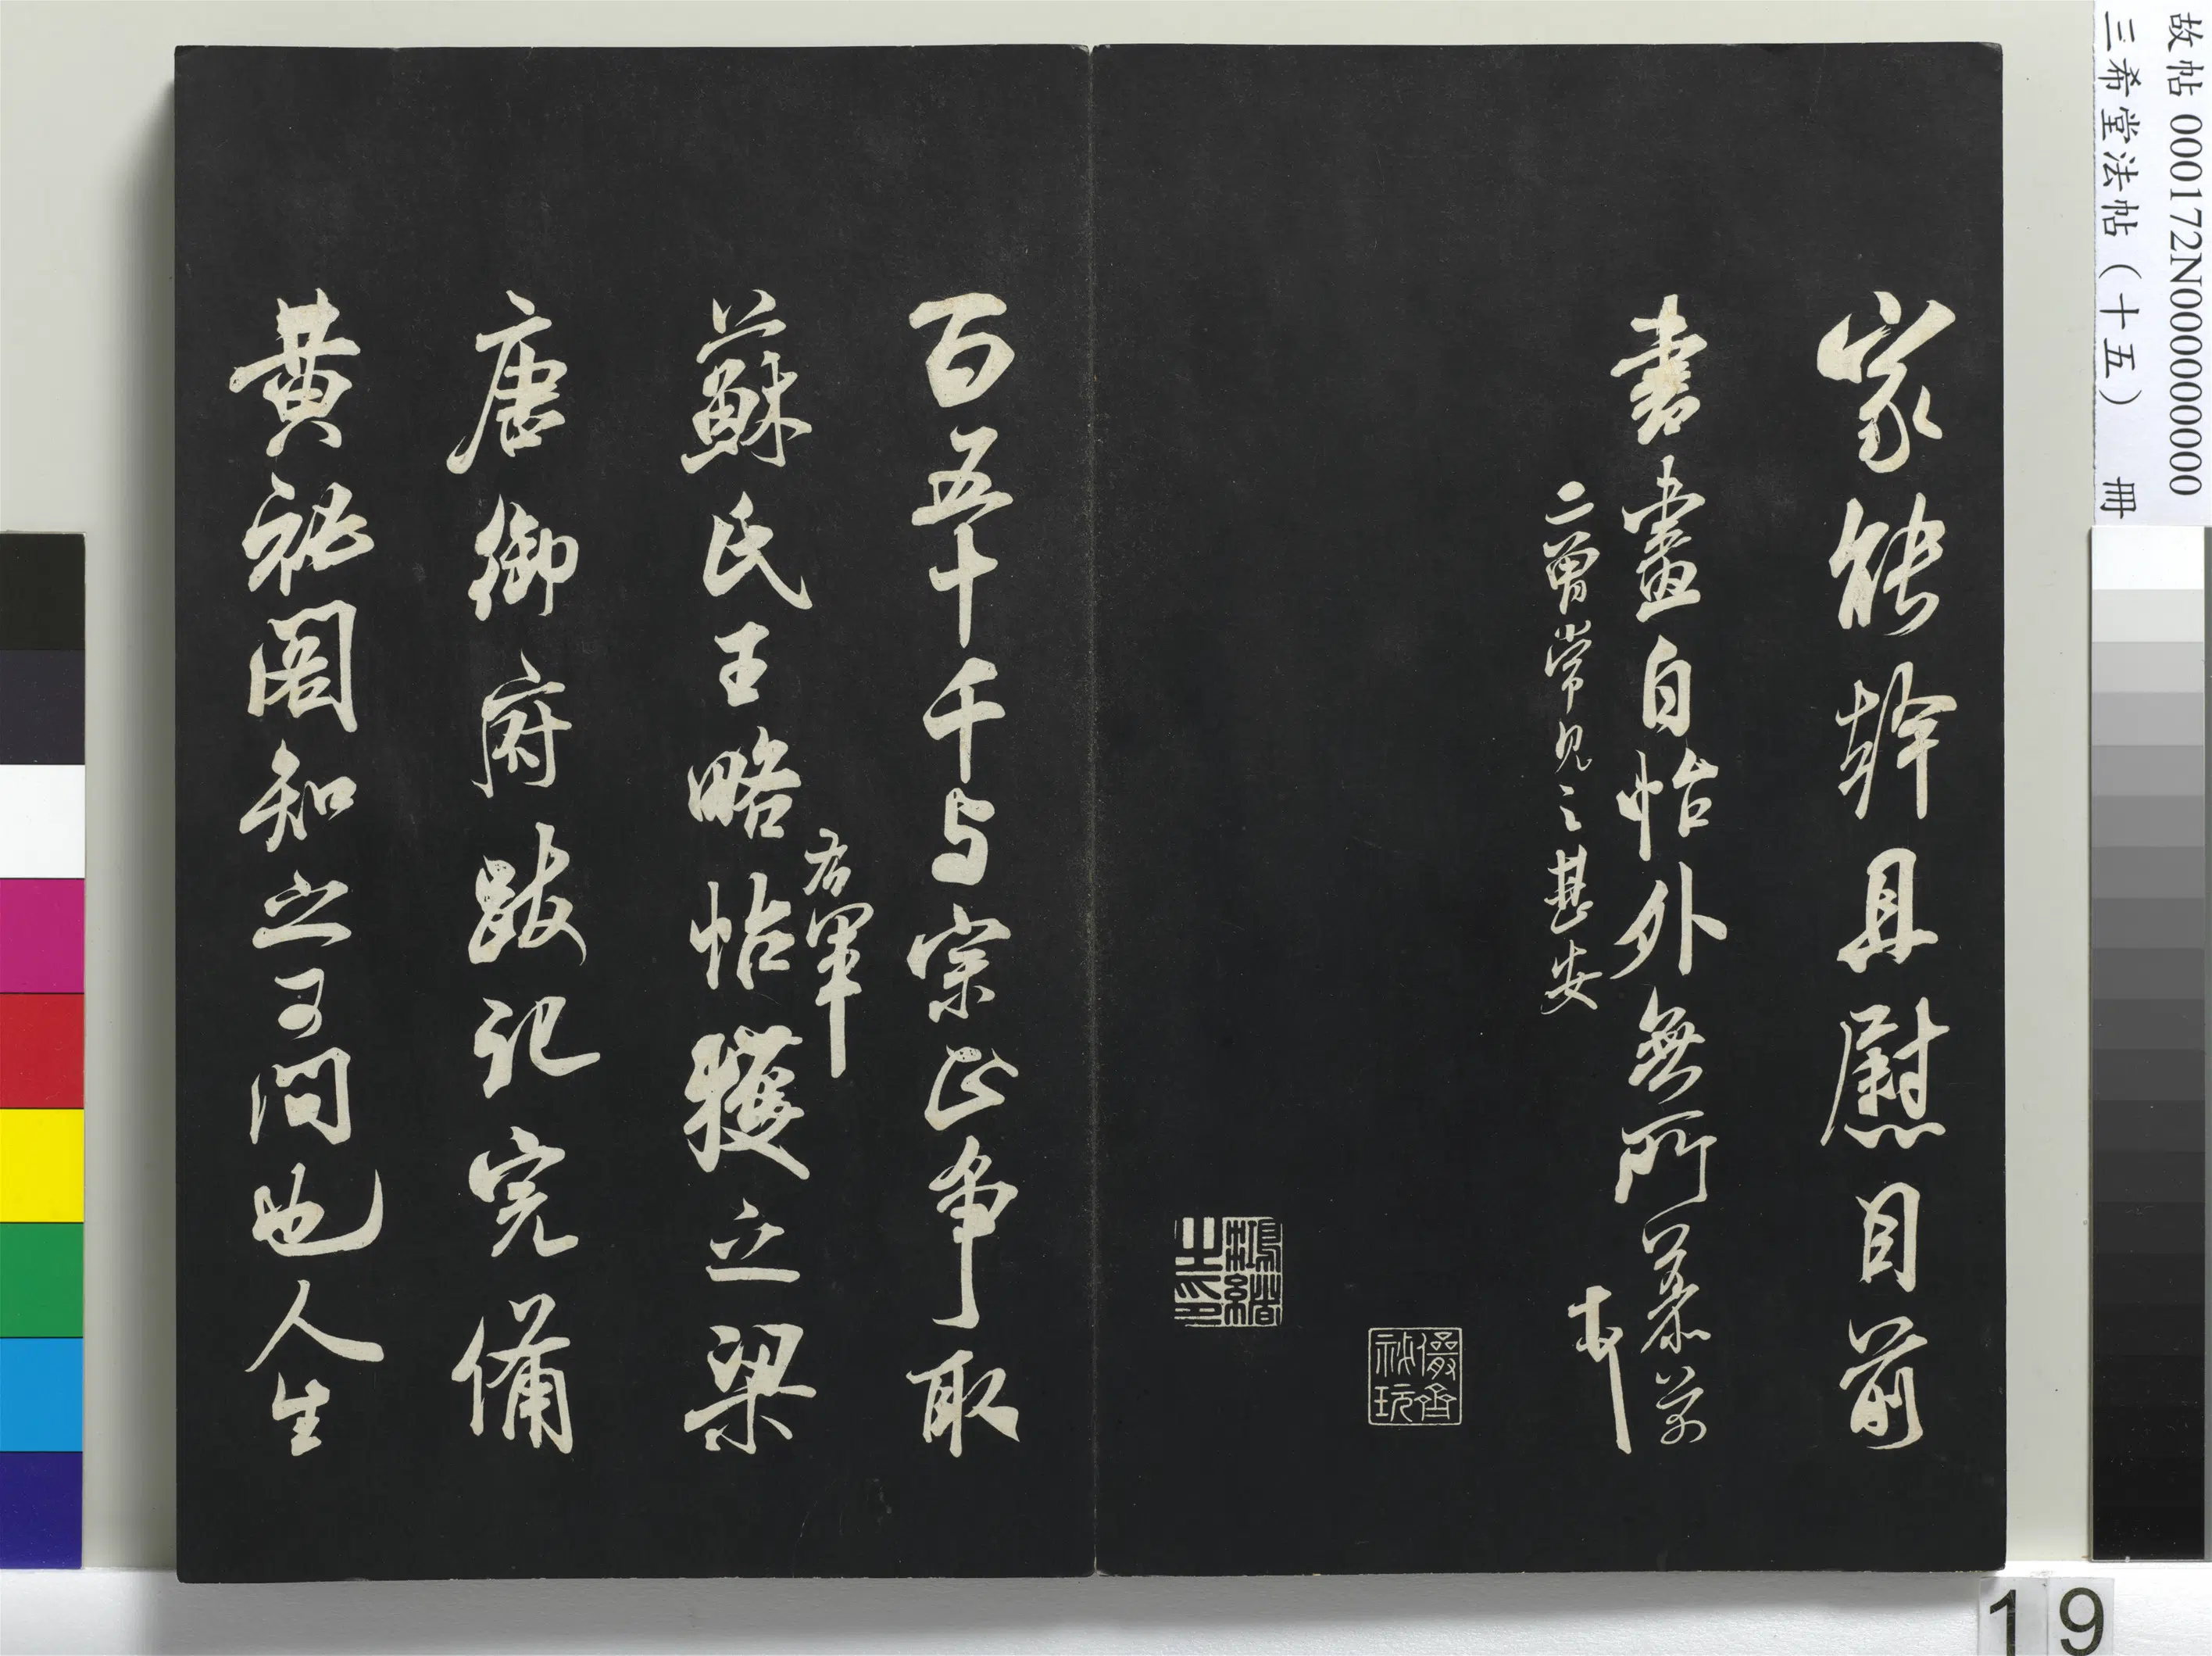 故帖 000172N000000000
三希堂法帖（十五） 冊
家能幹且慰目前
書畫自怡外無所慕
芾
二曾常見之甚安
儼齋
祕玩
鴻緒
之印
百五十千与宗正爭取
蘇氏王略帖獲之梁
右軍
唐御府跋記完備
黃秘閣知之可問也人生
19